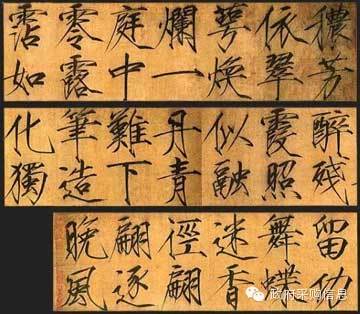 穠芳
依翠
萼煥
爛一
庭中
零露
霑如
醉殘
霞照
似融
丹青
難下
筆造
化獨
留功
舞蝶
迷香
徑翩
翩逐
晚風
政府采购信息